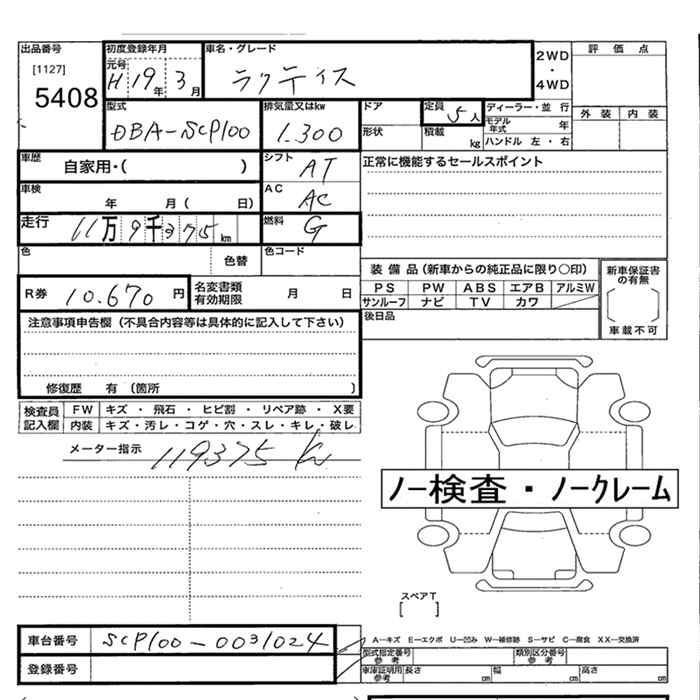 出品番号 初度登録年月 車名・グレード 2WD・4WD 評価点
[1127] 5408 元号 H 19年 3月 ラクティス
外装 内装
型式 排気量又はkw ドア 定員 5人 ディーラー・並行
DBA-SCP100 1.300 形状 積載 kg モデル年式 年
ハンドル 左・右
車歴 自家用・( ) シフト AT 正常に機能するセールスポイント
車検 年 月( 日) AC AC
走行 11万9千375km 燃料 G
色 色替 色コード
装備品(新車からの純正品に限り〇印) 新車保証書の有無
R券 10.670円 名変書類有効期限 月 日
PS PW ABS エアB アルミW
サンルーフ ナビ TV カワ 車載不可
注意事項申告欄(不具合内容等は具体的に記入して下さい) 後日品
修復歴 有 (箇所 )
検査員記入欄 FW キズ・飛石・ヒビ割・リペア跡・X要
内装 キズ・汚レ・コゲ・穴・スレ・キレ・破レ
メーター指示 119375 K
ノー検査・ノークレーム
スペアT
[ ]
車台番号 SCP100-0031024
A−キズ E−エクボ U−凹み W−補修跡 S−サビ C−腐食 XX−交換済
型式指定番号 参考 類別区分番号 参考
登録番号 車庫証明用参考 長さ cm 幅 cm 高さ cm